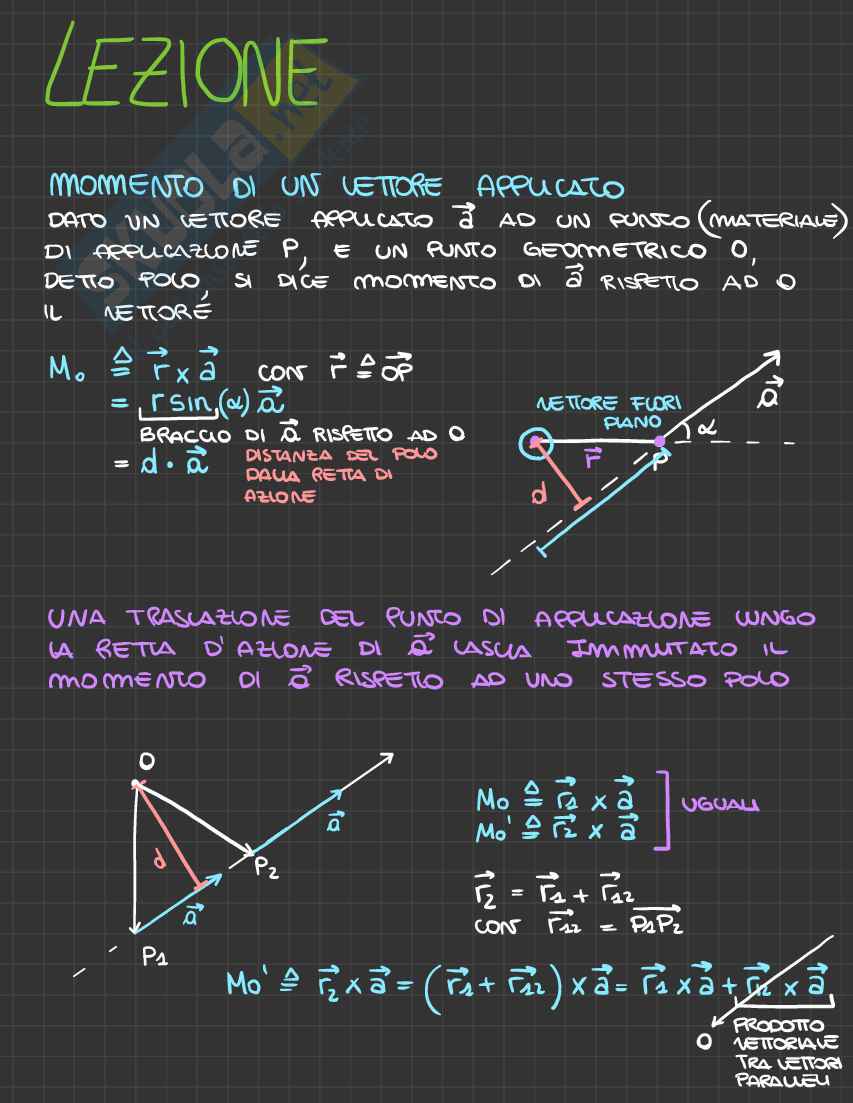 LEZIONE
SKUOLA.net
MOMENTO DI UN VETTORE APPLICATO
DATO UN VETTORE APPLICATO a⃗ AD UN PUNTO (MATERIALE)
DI APPLICAZIONE P, E UN PUNTO GEOMETRICO O,
DETTO POLO, SI DICE MOMENTO DI a⃗ RISPETTO AD O
IL VETTORE
Mo ≜ r⃗ x a⃗ CON r⃗ ≜ OP⃗
= r sin(α) a⃗
BRACCIO DI a⃗ RISPETTO AD O
= d · a⃗
DISTANZA DEL POLO
DALLA RETTA DI
AZIONE
VETTORE FUORI
PIANO
a⃗
α
r⃗
P
d
UNA TRASLAZIONE DEL PUNTO DI APPLICAZIONE LUNGO
LA RETTA D'AZIONE DI a⃗ LASCIA IMMUTATO IL
MOMENTO DI a⃗ RISPETTO AD UNO STESSO POLO
O
a⃗
d
P2
a⃗
P1
Mo ≜ r1⃗ x a⃗
Mo' ≜ r2⃗ x a⃗
UGUALI
r⃗2 = r⃗1 + r⃗12
CON r⃗12 = P1P2⃗
Mo' ≜ r⃗2 x a⃗ = (r⃗1 + r⃗12) x a⃗ = r⃗1 x a⃗ + r⃗12 x a⃗
O
PRODOTTO
VETTORIALE
TRA VETTORI
PARALLELI